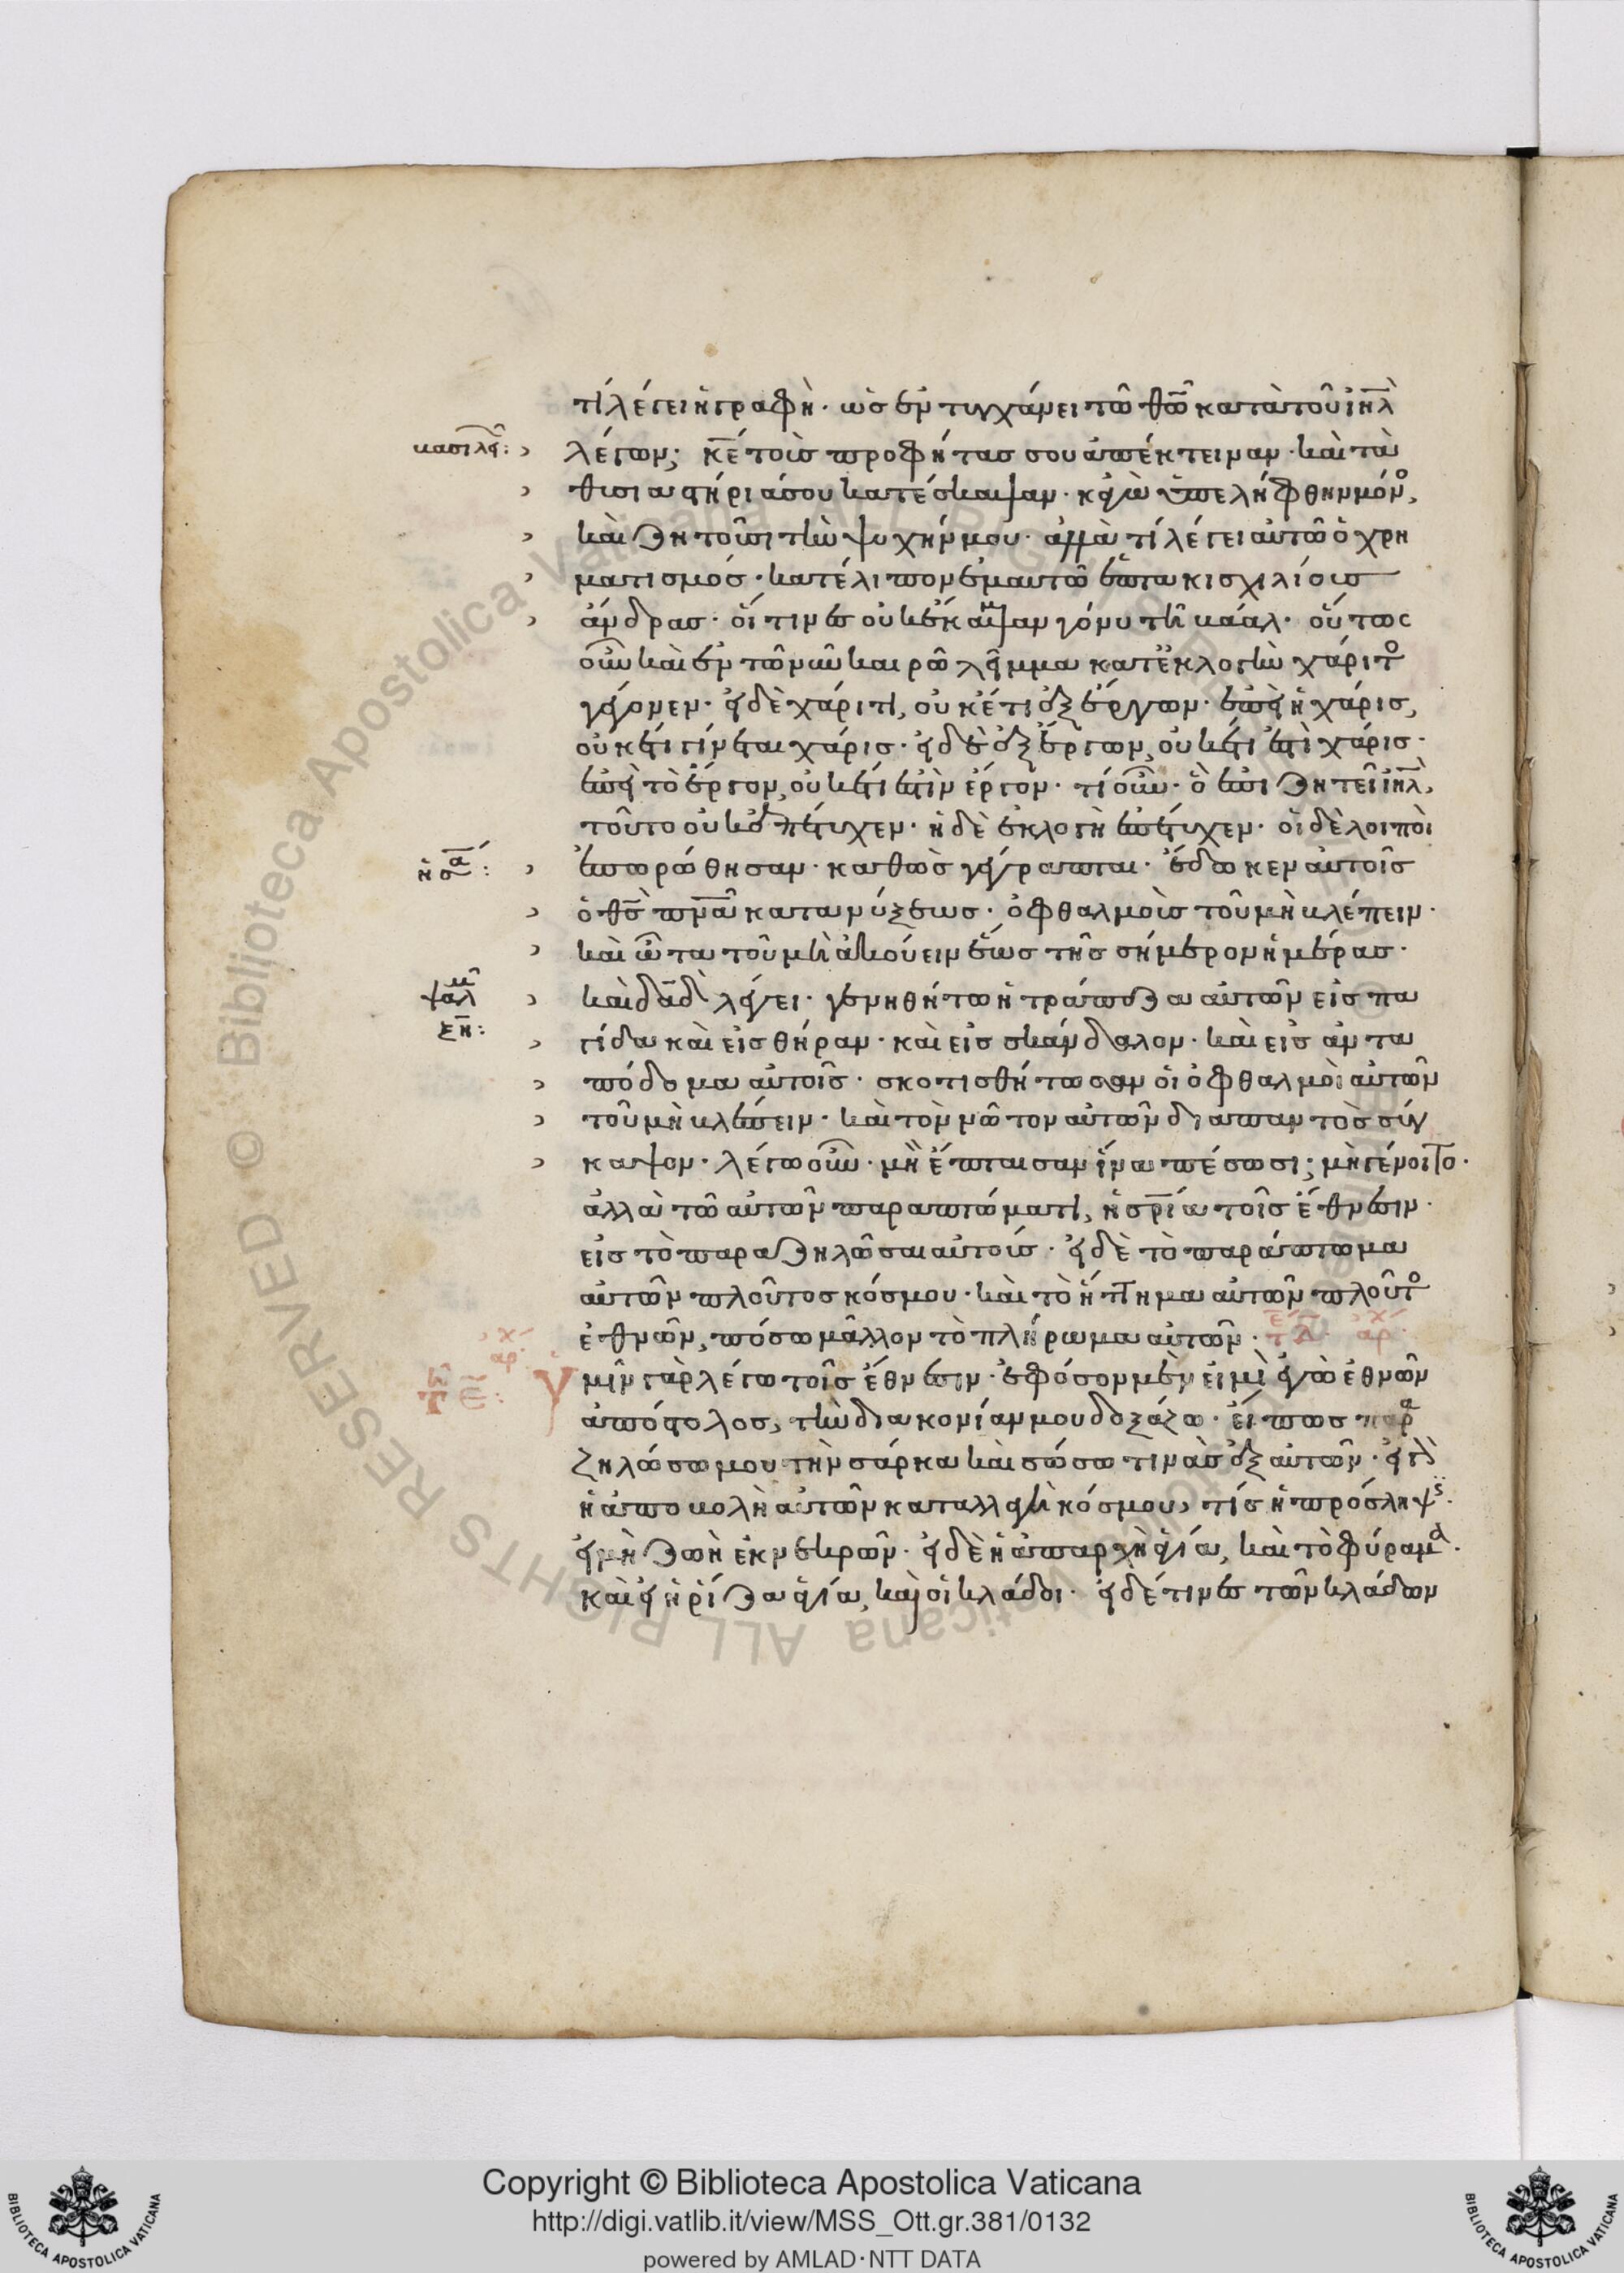 τί λέγει ἡ γραφή· ὡς ἐντυγχάνει τῶ θῶ κατὰ τοῦ ἰηλ
βασιλει: λέγων; κε τοὺς προφήτας σου ἀπέκτειναν· καὶ τὰ
θυσιαστήριά σου κατέσκαψαν· κἀγὼ ὑπελήφθην μόνο,
καὶ ζητοῦσι τὴν ψυχήν μου· ἀλλὰ τί λέγει αὐτῶ ὁ χρη
ματισμός· κατέλιπον ἐμαυτῶ ἑπτακισχιλίους
ἄνδρας· οἵτινες οὐκ ἔκαμψαν γόνυ τῆ βάαλ· οὕτως
οὖν καὶ ἐν τῶ νῦν καιρῶ λῆμμα κατ ἐκλογὴν χάριτο
γέγονεν· εἰ δὲ χάριτι, οὐκέτι ἐξ ἔργων· ἐπεὶ ἡ χάρις,
οὐκέτι γίνεται χάρις· εἰ δὲ ἐξ ἔργων, οὐκέτι ἐστὶ χάρις·
ἐπεὶ τὸ ἔργον, οὐκέτι ἐστὶν ἔργον· τί οὖν· ὃ ἐπιζητεῖ ἰηλ,
τοῦτο οὐκ ἐπέτυχεν· ἡ δὲ ἐκλογὴ ἐπέτυχεν· οἱ δὲ λοιποὶ
ἡσα: ἐπωρώθησαν· καθὼς γέγραπται· ἔδωκεν αὐτοῖς
ὁ θς πνα κατανύξεως· ὀφθαλμοὺς τοῦ μὴ βλέπειν·
καὶ ὦτα τοῦ μὴ ἀκούειν ἕως τῆς σήμερον ἡμέρας·
ψαλμ καὶ δαδ λέγει· γενηθήτω ἡ τράπεζα αὐτῶν εἰς πα
ξη: γίδα καὶ εἰς θήραν· καὶ εἰς σκάνδαλον· καὶ εἰς ἀντα
πόδομα αὐτοῖς· σκοτισθήτωσαν οἱ ὀφθαλμοὶ αὐτῶν
τοῦ μὴ βλέπειν· καὶ τὸν νῶτον αὐτῶν διαπαντὸς σύγ
καψον· λέγω οὖν· μὴ ἔπταισαν ἵνα πέσωσι; μὴ γένοιτο·
ἀλλὰ τῶ αὐτῶν παραπτώματι, ἡ σρία τοῖς ἔθνεσιν·
εἰς τὸ παραζηλῶσαι αὐτούς· εἰ δὲ τὸ παράπτωμα
αὐτῶν πλοῦτος κόσμου· καὶ τὸ ἥττημα αὐτῶν πλοῦτο
ἐθνῶν, πόσω μᾶλλον τὸ πλήρωμα αὐτῶν· τελ αρχ
αρχ
Ὑμῖν γὰρ λέγω τοῖς ἔθνεσιν· ἐφόσον μὲν εἰμὶ ἐγὼ ἐθνῶν
ἀπόστολος, τὴν διακονίαν μου δοξάζω· εἴπως παρα
ζηλώσω μου τὴν σάρκα καὶ σώσω τινὰς ἐξ αὐτῶν· εἰ γὰρ
ἡ ἀποβολὴ αὐτῶν καταλλαγὴ κόσμου, τίς ἡ πρόσληψις·
εἰ μὴ ζωὴ ἐκ νεκρῶν· εἰ δὲ ἡ ἀπαρχὴ ἁγία, καὶ τὸ φύραμα·
καὶ εἰ ἡ ρίζα ἁγία, καὶ οἱ κλάδοι· εἰ δέ τινες τῶν κλάδων
Copyright © Biblioteca Apostolica Vaticana
http://digi.vatlib.it/view/MSS_Ott.gr.381/0132
powered by AMLAD·NTT DATA
BIBLIOTECA APOSTOLICA VATICANA
BIBLIOTECA APOSTOLICA VATICANA